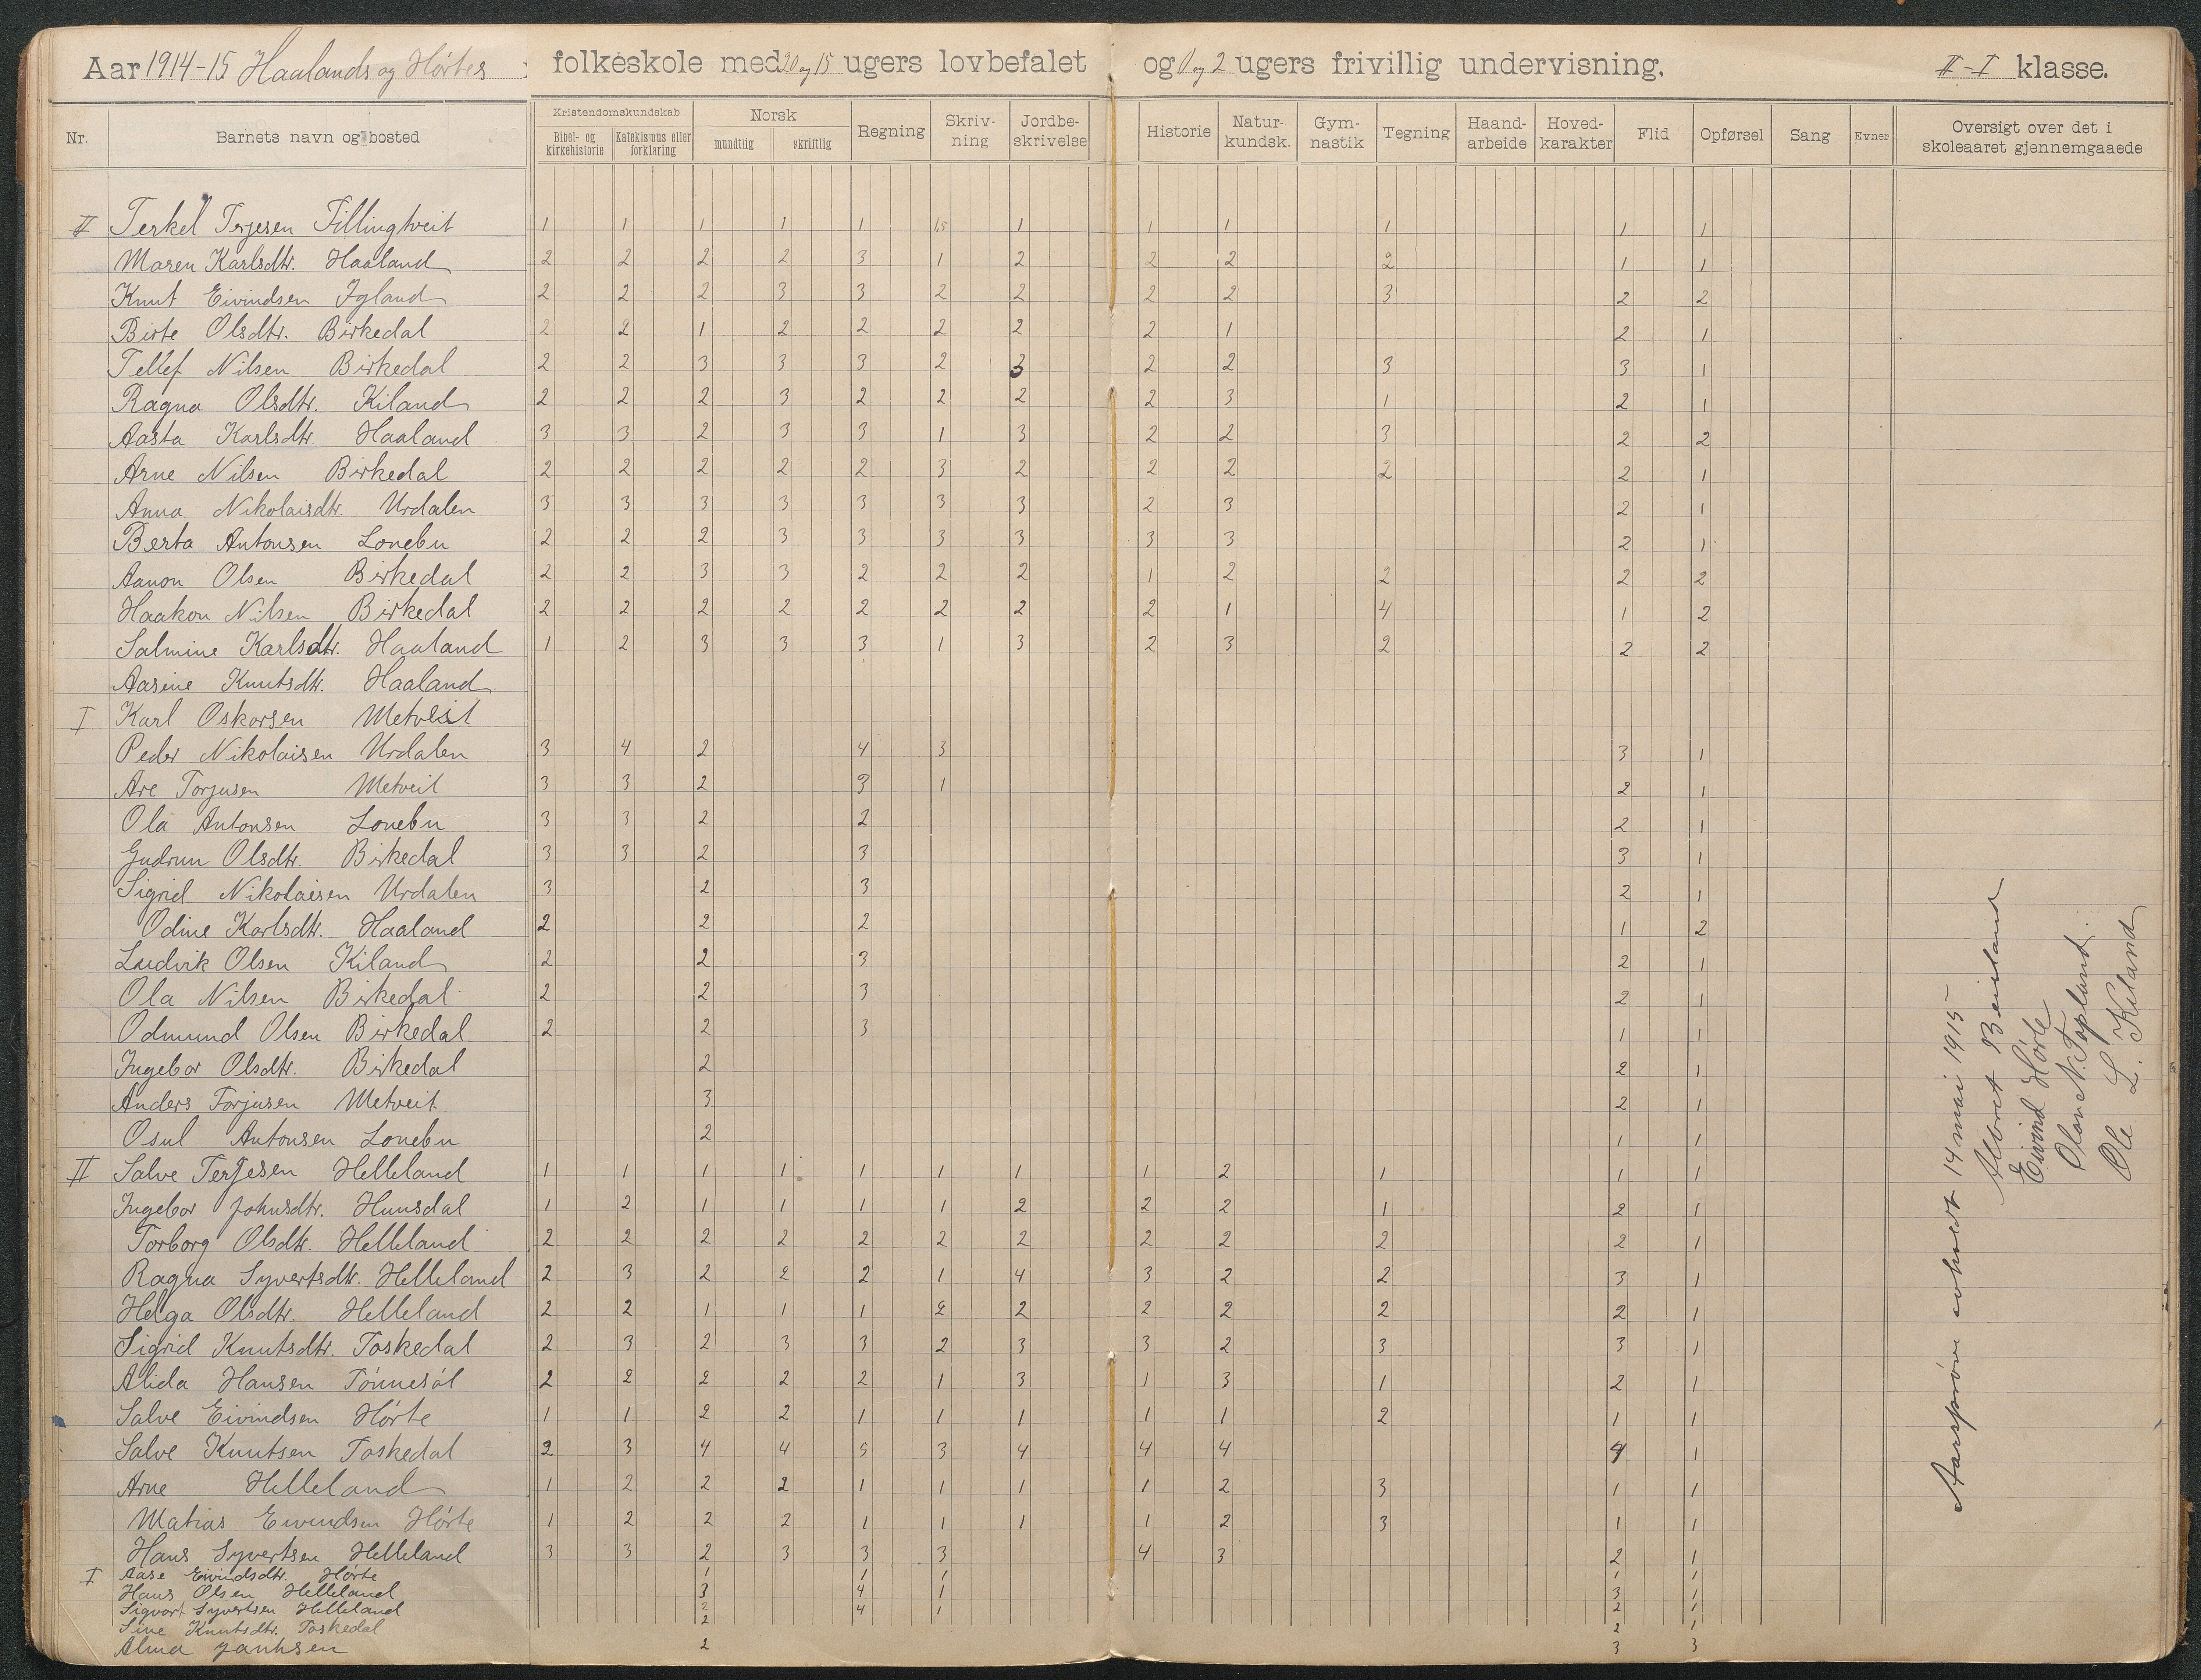 Aar 1914-15 Haalands og Hørtes folkeskole med 20 og 15 ugers lovbefalet og 0 og 2 ugers frivillig undervisning. II-I klasse.
Nr. Barnets navn og bosted Kristendomskundskab Bibel- og kirkehistorie Katekismus eller forklaring Norsk mundtlig skriftlig Regning Skriv-ning Jordbe-skrivelse Historie Natur-kundsk. Gym-nastik Tegning Haand-arbeide Hoved-karakter Flid Opførsel Sang Evner Oversigt over det i skoleaaret gjennemgaaede
II Terkel Terjesen Fillingtveit 1 1 1 1 1 1,5 1 1 1 1 1 1
Maren Karlsdtr. Haaland 2 2 2 2 3 1 2 2 2 2 1 1
Knut Eivindsen Igland 2 2 2 3 3 2 2 2 2 3 2 2
Birte Olsdtr. Birkedal 2 2 1 2 2 2 2 2 1 2 1
Tellef Nilsen Birkedal 2 2 3 3 3 2 3 2 2 3 3 1
Ragna Olsdtr. Kiland 2 2 2 3 2 2 2 2 3 1 2 1
Aasta Karlsdtr. Haaland 3 3 2 3 3 1 3 2 2 3 2 2
Arne Nilsen Birkedal 2 2 2 2 2 3 2 2 2 2 2 1
Anna Nikolaisdtr. Urdalen 3 3 3 3 3 3 3 2 3 2 1
Berta Antonsen Lonebu 2 2 2 3 3 3 3 3 3 2 1
Aanon Olsen Birkedal 2 2 3 3 2 2 2 1 2 2 2 2
Haakon Nilsen Birkedal 2 2 2 2 2 2 2 2 1 4 1 2
Salmine Karlsdtr. Haaland 1 2 3 3 3 1 3 2 3 2 2 2
Aasine Knutsdtr. Haaland
I Karl Oskarsen Metveit
Peder Nikolaisen Urdalen 3 4 2 4 3 3 1
Are Torjusen Metveit 3 3 2 3 1 2 1
Ola Antonsen Lonebu 3 3 2 2 2 1
Gudrun Olsdtr. Birkedal 3 3 2 3 3 1
Sigrid Nikolaisen Urdalen 3 2 3 2 1
Odine Karlsdtr. Haaland 2 2 2 1 2
Ludvik Olsen Kiland 2 2 3 2 1
Ola Nilsen Birkedal 2 2 3 2 1
Odmund Olsen Birkedal 2 2 3 1 1
Ingebor Olsdtr. Birkedal 2 2 1
Anders Torjusen Metveit 3 2 1
Osul Antonsen Lonebu 2 1 1
II Salve Terjesen Helleland 1 1 1 1 1 1 1 1 2 1 1 1
Ingebor Johnsdtr. Hunsdal 1 2 1 1 1 1 2 2 2 1 2 1
Torborg Olsdtr. Helleland 2 2 2 2 2 2 2 2 2 2 2 1
Ragna Syvertsdtr. Helleland 2 3 2 2 2 1 4 3 2 2 3 1
Helga Olsdtr. Helleland 2 2 1 1 1 2 2 2 2 2 2 1
Sigrid Knutsdtr. Toskedal 2 3 2 3 3 2 3 3 2 3 3 1
Alida Hansen Tønnesøl 2 2 2 2 2 1 3 1 3 1 2 1
Salve Eivindsen Hørte 1 1 2 2 1 1 1 1 1 2 1 1
Salve Knutsen Toskedal 2 3 4 4 5 3 4 4 4 4 1
Arne Helleland 1 2 2 2 1 1 1 1 2 3 1 1
Matias Eivindsen Hørte 1 2 2 2 1 1 1 1 2 3 1 1
Hans Syvertsen Helleland 3 3 2 3 3 3 4 3 2 1
I Aase Eivindsdtr. Hørte 1 1 1 1 1
Hans Olsen Helleland 3 4 1 3 1
Sigvart Syvertsen Helleland 2 4 1 2 1
Sine Knutsdtr. Toskedal 2 2 1
Alma Janhsen 2 3 3
Aarsprøve avholdt 14 mai 1915
Albret Beisland
Eivind Hørte
Olav N. Topland.
Ole L. Kiland